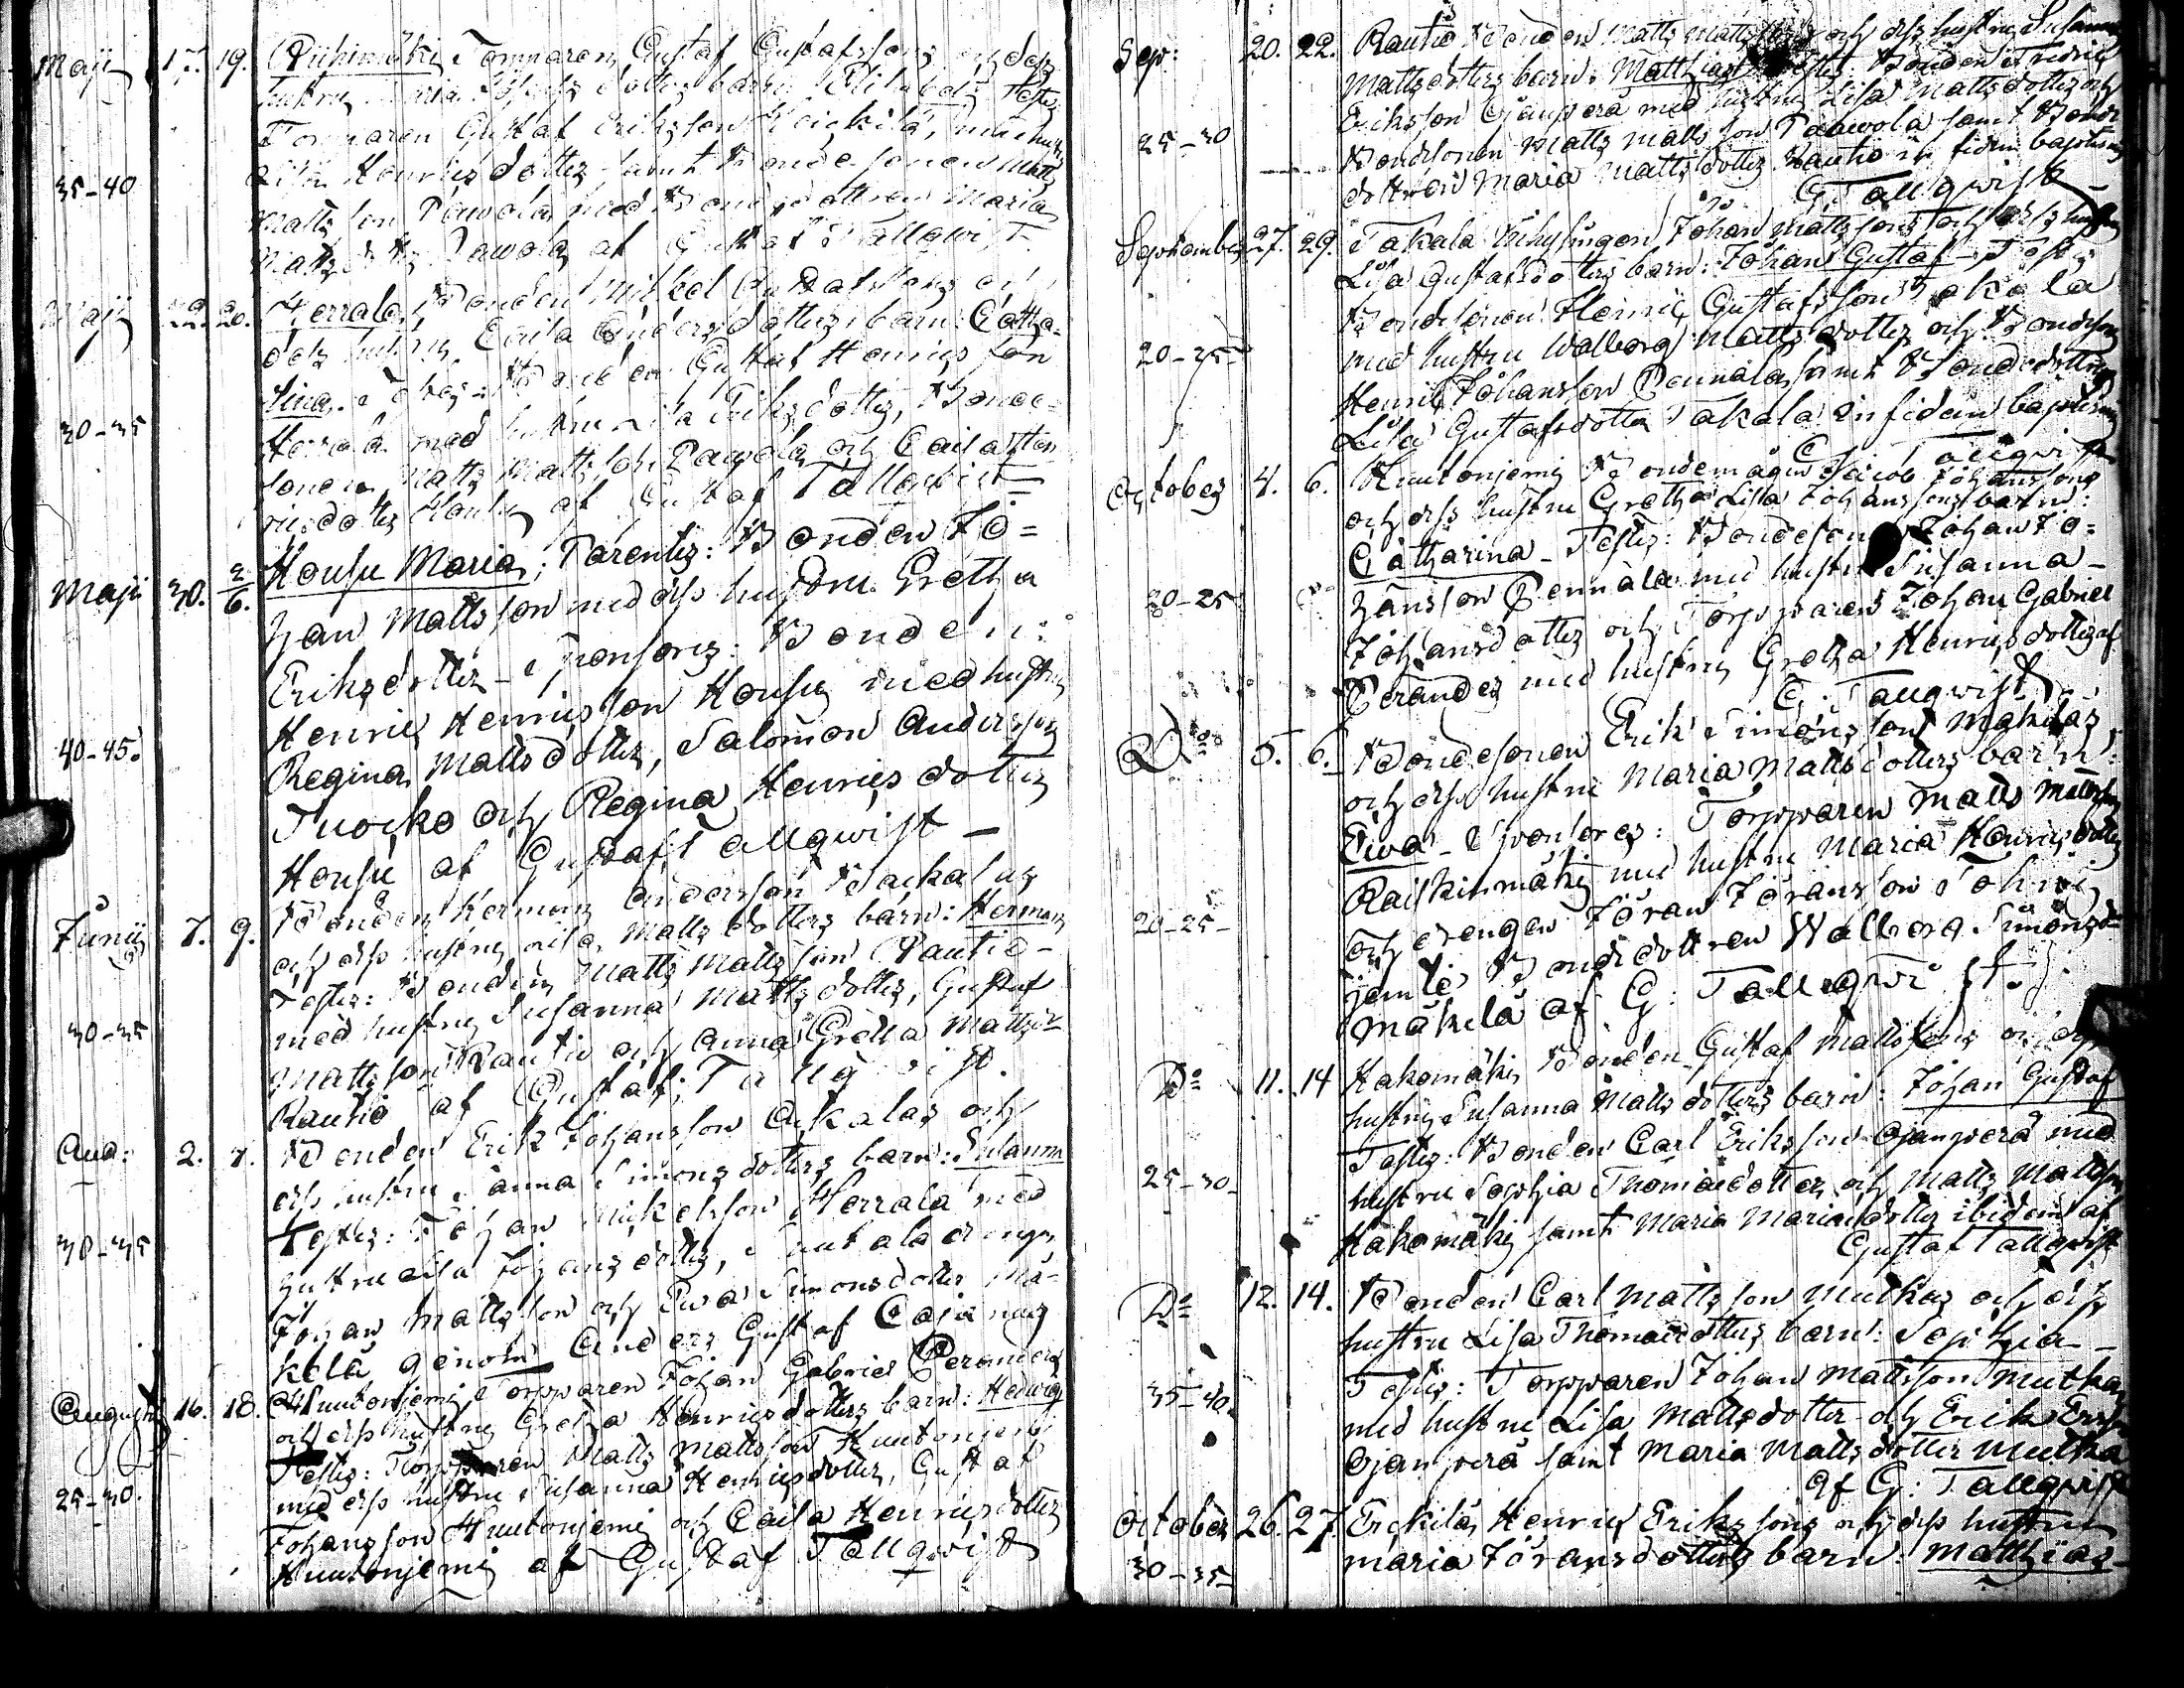 Maji 17. 19. Riihimäki Torparen Gustaf Gustafssons och dess
hustru Maria dotters barn: Elisabet Testes
Torparen Gustaf Eriksson med hustru
Henriksdotter samt Bondesonen Matts
35-40
Mattsson Pawola med Bondedottren Maria
Mattsdotter Pawola af Gustaf Tallqvist
Maji 20. Herrala Bonden Mickel Gustafssons och
dess hustru Caisa Andersdotters barn: Catha-
rina. Testes: Bonden Gustaf Henricsson
30-35
Herrala med hustru Eriksdotter, Bonde-
sonen Matts Mattsson Pawola och Caisa Hen-
ricsdotter af Gustaf Tallqvist
Maji 30. 2/6. Housu Maria; Parentes: Bonden Jo-
han Mattsson med dess hustru Gretha
Eriksdotter - Sponsores: Bonden:
Henric Henricsson Housu med hustru
40-45.
Regina Mattsdotter, Salomon Andersson
Tuocko och Regina Henricsdotter
Housu af Gustaf Tallqvist -
Junii 7. 9. Bonden Herman Andersson
och dess hustru Caisa Mattsdotters barn: Herman
Testes: Bonden Matts Mattsson Rautio -
med hustru Susanna Mattsdotter, Gustaf
30-35
Mattsson Rautio och Anna Gretha Mattsdr
Rautio af Gustaf Tallqvist.
Aug: 2. Bonden Erik Johansson och
dess hustru Sanna Simonsdotters barn: Susanna
Testes: Johan Mickelsson Herrala med
30-35
hustru Caisa Johansdotter, drengen
Johan Mattsson och Ewa Simonsdotter Mä-
kelä genom Anders Gustaf Cajanus
Augusti 16. 18. Huutonjemi Torpparen Johan Gabriel Peranders
och dess hustru Gretha Henricsdotters barn: Hedwig
Testes: Torpparen Matts Mattsson Huutonjemi
25-30.
med dess hustru Susanna Henricsdotter, Gustaf
Johansson Huutonjemi och Caisa Henricsdotter
Huutonjemi af Gustaf Tallqvist
Sep: 20. 22. Rautio Bonden Matts Mattssons och dess hustru Susanna
Mattsdotters barn: Matthias Testes: Bonden Fredric
Eriksson Ojanperä med hustru Lisa Mattsdotter och
25-30
Bondesonen Matts Mattsson Pawola samt Bonde
dottren Maria Mattsdotter Rautio in fidem baptismi
G. Tallqvist
September 27. 29. Takala Inhysingen Johan Mattssons och dess hustru
Lisa Gustafsdotters barn: Johan Gustaf - Testes
Bondesonen Henric Gustafsson Takala
20-25
med hustru Walborg Mattsdotter och Bondeson
Henric Johansson Pennala samt Bondedottren
Lisa Gustafsdotter Takala in fidem baptismi
G Tallqvist
October 4. 6. Huutonjemi Bondemågen Jacob Johanssons
och dess hustru Gretha Lisa Johanssons barn:
Catharina - Testes: Bondeson Johan Jo-
20-25
hansson Pennala med hustru Susanna -
Johansdotter och Torpparen Johan Gabriel
Perander med hustru Gretha Henricsdotter af
G. Tallqvist
Do 5. 6. Bondesonen Erik Simonsson Mäkeläs
och dess hustru Maria Mattsdotters barn:
Ewa - Sponsores: Torpparen Matts Mattsson
Raiskinmäki med hustru Maria Henricsdotter
20-25-
och drengen Jöran Jöransson
jemte Bondedottren Walborg Simonsdr
Mäkelä af G: Tallqvist.
Do 11. 14 Hakomäki Bonden Gustaf Mattssons och dess
hustru Susanna Mattsdotters barn: Johan Gustaf
Testes: Bonden Carl Eriksson Ojanperä med
25-30-
hustru Sophia Thomaedotter och Matts Mattsson
Hakomäki samt Maria Mariaedotter ibidem af
Gustaf Tallqvist
Do 12. 14. Bonden Carl Mattsson Mutkas och dess
hustru Lisa Thomaedotters barn: Sophia -
Testes: Torpparen Johan Mattsson Mutka
35-40.
med hustru Lisa Mattsdotter och Erik Ersson
Ojanperä samt Maria Mattsdotter Mutka
af G: Tallqvist
October 26. 27. Erckilä Henric Erikssons och dess hustru
30-35-
Maria Jöransdotters barn: Matthias -